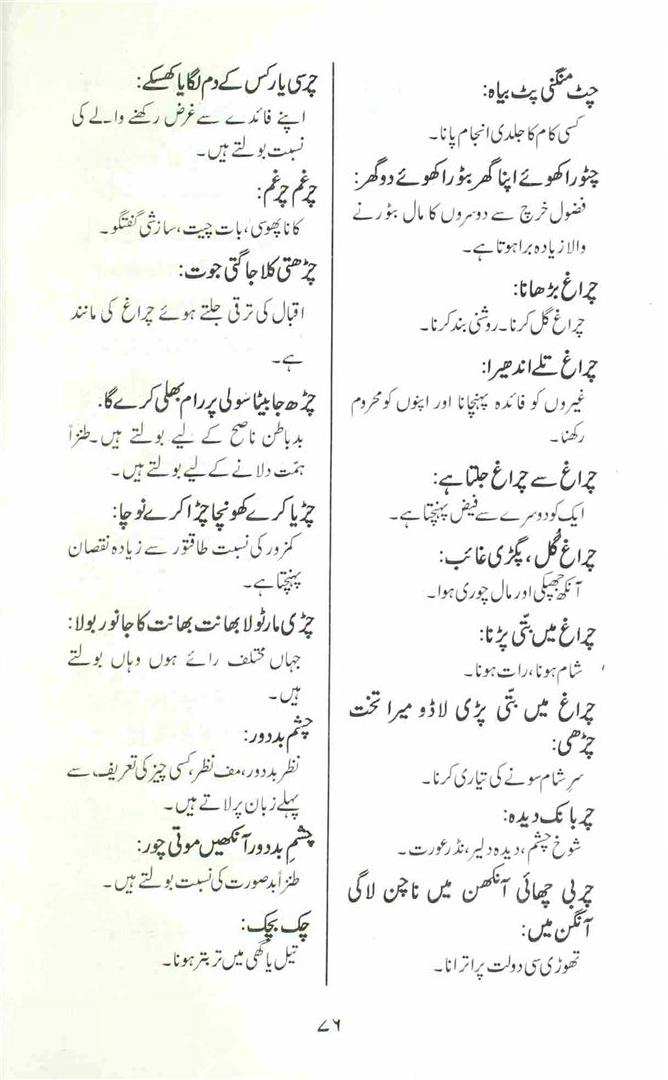 چٹ منگنی پٹ بیاہ:
کسی کام کا جلدی انجام پانا۔
چٹورا کھوئے اپنا گھر بٹورا کھوئے دو گھر:
فضول خرچ سے دوسروں کا مال بٹورنے
والا زیادہ برا ہوتا ہے۔
چراغ بڑھانا:
چراغ گل کرنا۔ روشنی بند کرنا۔
چراغ تلے اندھیرا:
غیروں کو فائدہ پہنچانا اور اپنوں کو محروم
رکھنا۔
چراغ سے چراغ جلتا ہے:
ایک کو دوسرے سے فیض پہنچتا ہے۔
چراغ گُل، پگڑی غائب:
آنکھ جھپکی اور مال چوری ہوا۔
چراغ میں بتّی پڑنا:
شام ہونا، رات ہونا۔
چراغ میں بتّی پڑی لاڈو میرا تخت
چڑھی:
سرِ شام سونے کی تیاری کرنا۔
چربانک دیدہ:
شوخ چشم، دیدہ دلیر، نڈر عورت۔
چربی چھائی آنکھن میں ناچن لاگی
آنگن میں:
تھوڑی سی دولت پر اترانا۔
چرسی یار کس کے دم لگایا کھسکے:
اپنے فائدے سے غرض رکھنے والے کی
نسبت بولتے ہیں۔
چرغم چرغم:
کانا پھوسی، بات چیت، سازشی گفتگو۔
چڑھتی کلا جاگتی جوت:
اقبال کی ترقی جلتے ہوئے چراغ کی مانند
ہے۔
چڑھ جا بیٹا سَولی پر رام بھلی کرے گا:
بد باطن ناصح کے لیے بولتے ہیں۔ طنزاً
ہمّت دلانے کے لیے بولتے ہیں۔
چڑیا کرے کھونچا چڑا کرے نوچا:
کمزور کی نسبت طاقتور سے زیادہ نقصان
پہنچتا ہے۔
چڑی مار ٹولا بھانت بھانت کا جانور بولا:
جہاں مختلف رائے ہوں وہاں بولتے
ہیں۔
چشم بددور:
نظر بددور، مف نظر، کسی چیز کی تعریف سے
پہلے زبان پر لاتے ہیں۔
چشمِ بددور آنکھیں موتی چور:
طنزاً بدصورت کی نسبت بولتے ہیں۔
چک بچک:
تیل یا گھی میں تربتر ہونا۔
۷۶